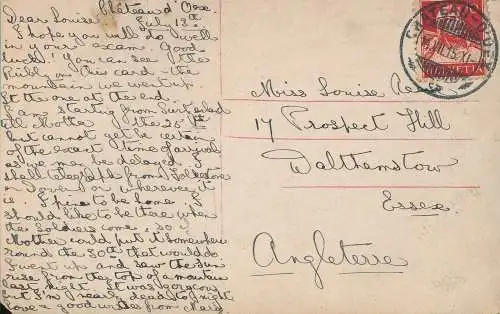 Château d'Oex.
July 13th.
Dear Louise
I hope you will do well
in your exams. Good
luck! You can see the
Rübly on this card – the
mountain we went up.
It the one at the end.
I am starting from Switzerland
the 25th
but cannot yet be certain
of the exact time of arrival
as we may be delayed. I
shall telegraph from Folkestone
or Dover or wherever it
is. I pine to be home. I
should like to be there when
the soldiers come, so if
Mother could put it somewhere
round the 30th that would do.
I went up and saw the sun
rise from the top of a mountain
last night. It was gorgeous
but I'm nearly dead tonight
Love & good wishes from
Miss Louise
17 Prospect Hill
Walthamstow
Essex.
Angleterre
CHATEAU-D'OEX
HELVETIA